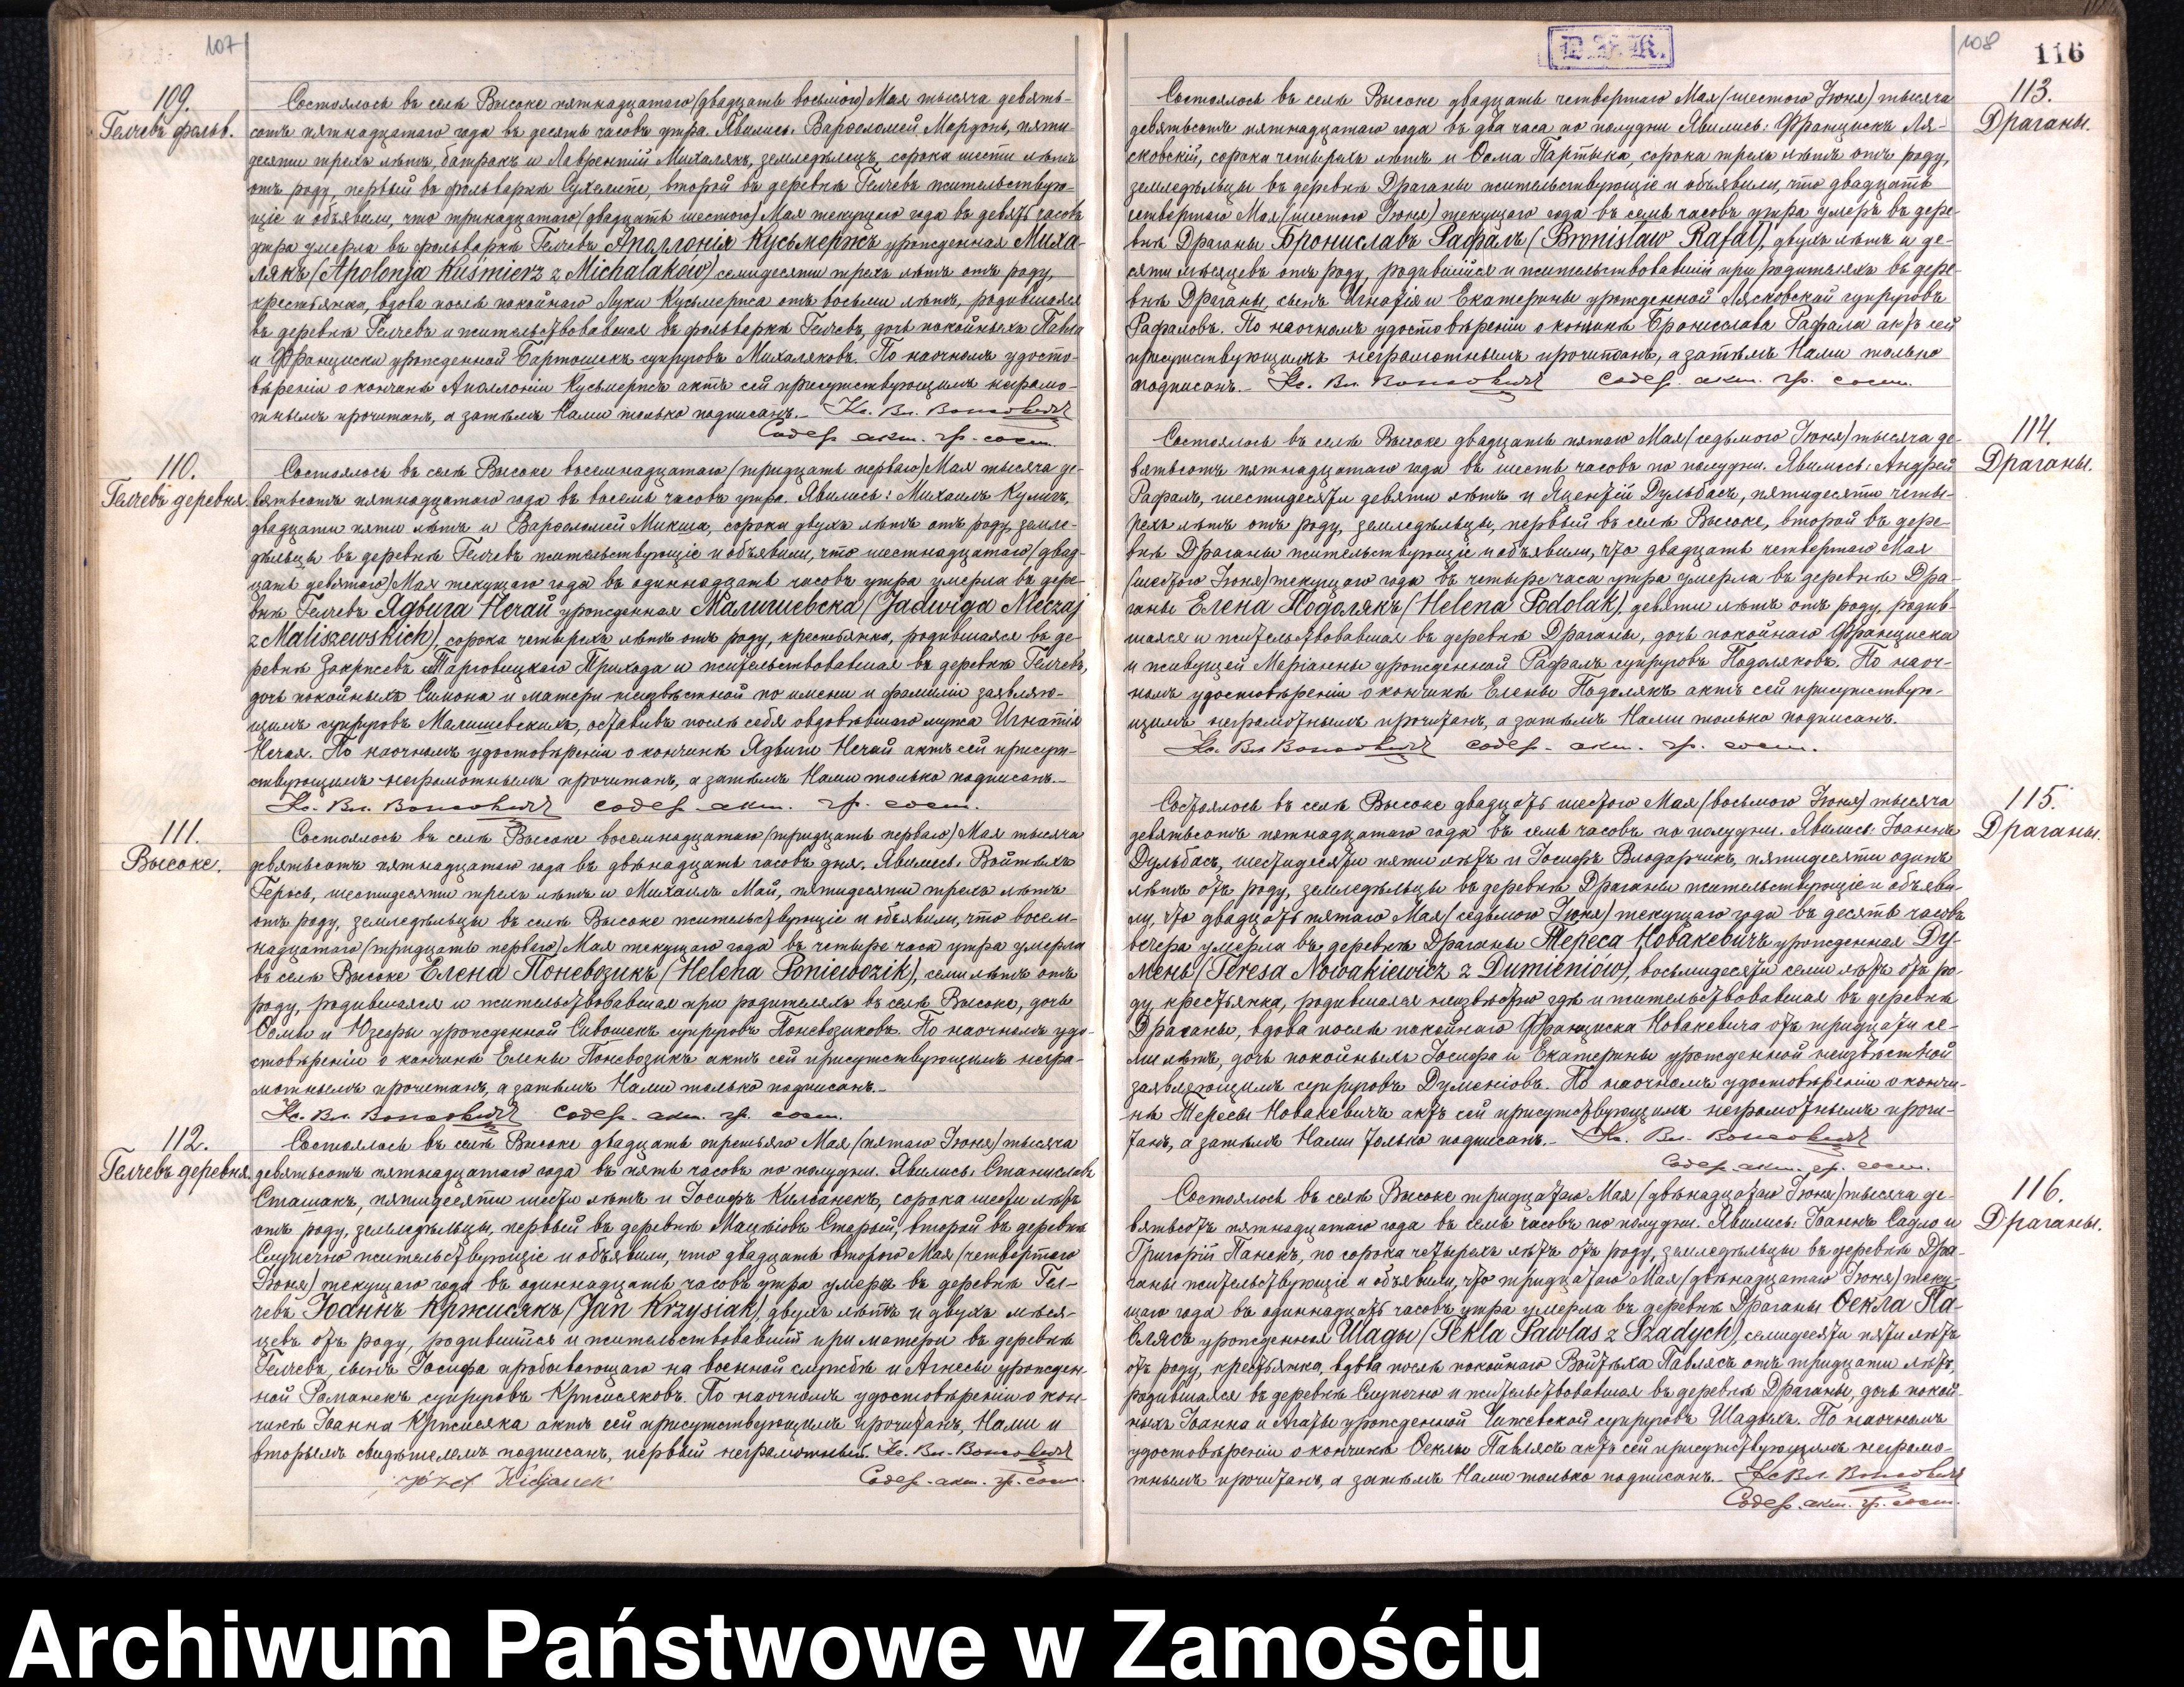 107
109.
Гелчевъ фольв.
Состоялось въ селѣ Высоке пятнадцатаго (двадцать восьмого) Мая тысяча девять-
сотъ пятнадцатаго года въ десять часовъ утра. Явились: Варѳоломей Мордонь, пяти-
десяти трехъ лѣтъ, батракъ и Лаврентій Михалякъ, земледѣлецъ, сорока шести лѣтъ
отъ роду, первый въ фольваркѣ Сухелипе, второй въ деревнѣ Гелчевъ жительствую-
щіе и объявили, что тринадцатаго (двадцать шестого) Мая текущаго года въ девять часовъ
утра умерла въ фольваркѣ Гелчевъ Аполлонія Кусьмержъ урожденная Миха-
лякъ (Apolonja Kuśmierz z Michalaków) семидесяти трехъ лѣтъ отъ роду,
крестьянка, вдова послѣ покойнаго Луки Кусьмержа отъ восьми лѣтъ, родившаяся
въ деревнѣ Гелчевъ и жительствовавшая въ фольваркѣ Гелчевъ, дочь покойныхъ Павла
и Франциски урожденной Бартошекъ супруговъ Михаляковъ. По наочномъ удосто-
вѣреніи о кончинѣ Аполлоніи Кусьмержъ актъ сей присутствующимъ неграмо-
тнымъ прочитанъ, а затѣмъ Нами только подписанъ.- Кс. Вл.
Содер. акт. гр. сост.
110.
Гелчевъ деревня.
Состоялось въ селѣ Высоке восемнадцатаго (тридцать перваго) Мая тысяча де-
вятьсотъ пятнадцатаго года въ восемь часовъ утра. Явились: Михаилъ Куликъ,
двадцати пяти лѣтъ и Варѳоломей Микша, сорока двухъ лѣтъ отъ роду, земле-
дѣльцы въ деревнѣ Гелчевъ жительствующіе и объявили, что шестнадцатаго (двад-
цать девятого) Мая текущаго года въ одиннадцать часовъ утра умерла въ дере-
внѣ Гелчевъ Ядвига Нечай урожденная Малишевска (Jadwiga Nieczaj
z Maliszewskich), сорока четырехъ лѣтъ отъ роду, крестьянка, родившаяся въ де-
ревнѣ Закржевъ Тарговицкаго Прихода и жительствовавшая въ деревнѣ Гелчевъ,
дочь покойныхъ Симона и матери неизвѣстной по имени и фамиліи заявляю-
щимъ супруговъ Малишевскихъ, оставивъ послѣ себя овдовѣвшаго мужа Игнатія
Нечая. По наочномъ удостовѣреніи о кончинѣ Ядвиги Нечай актъ сей присут-
ствующимъ неграмотнымъ прочитанъ, а затѣмъ Нами только подписанъ.-
Кс. Вл. содер. акт. гр. сост.
111.
Высоке.
Состоялось въ селѣ Высоке восемнадцатаго (тридцать перваго) Мая тысяча
девятьсотъ пятнадцатаго года въ двѣнадцать часовъ дня. Явились: Войтѣхъ
Герось, шестидесяти трехъ лѣтъ и Михаилъ Май, пятидесяти трехъ лѣтъ
отъ роду, земледѣльцы въ селѣ Высоке жительствующіе и объявили, что восем-
надцатаго (тридцать перваго) Мая текущаго года въ четыре часа утра умерла
въ селѣ Высоке Елена Поневозикъ (Helena Poniewozik), семи лѣтъ отъ
роду, родившаяся и жительствовавшая при родителяхъ въ селѣ Высоке, дочь
Ѳомы и Юзефы урожденной Сивошекъ супруговъ Поневозиковъ. По наочномъ удо-
стовѣреніи о кончинѣ Елены Поневозикъ актъ сей присутствующимъ негра-
мотнымъ прочитанъ, а затѣмъ Нами только подписанъ.-
Кс. Вл. содер. акт. гр. сост.
112.
Гелчевъ деревня.
Состоялось въ селѣ Высоке двадцать третьяго Мая (пятаго Іюня) тысяча
девятьсотъ пятнадцатаго года въ пять часовъ по полудни. Явились: Станиславъ
Сташакъ, пятидесяти шести лѣтъ и Іосифъ Килсанекъ, сорока шести лѣтъ
отъ роду, земледѣльцы, первый въ деревнѣ Мацѣіовъ Старый, второй въ деревнѣ
Слупечно жительствующіе и объявили, что двадцать второго Мая (четвертаго
Іюня) текущаго года въ одиннадцать часовъ утра умеръ въ деревнѣ Гел-
чевъ Іоаннъ Кржисякъ (Jan Krzysiak), двухъ лѣтъ и двухъ мѣся-
цевъ отъ роду, родившійся и жительствовавшій при матери въ деревнѣ
Гелчевъ, сынъ Іосифа пробывающаго на военной службѣ и Агнесы урожден-
ной Романекъ супруговъ Кржисяковъ. По наочномъ удостовѣреніи о кон-
чинѣ Іоанна Кржисяка актъ сей присутствующимъ прочитанъ, Нами и
вторымъ свидѣтелемъ подписанъ, первый неграмотный. Кс. Вл.
Józef Kidjanek Содер. акт. гр. сост.
108
116
D.F.K.
113.
Драганы.
Состоялось въ селѣ Высоке двадцать четвертаго Мая (шестого Іюня) тысяча
девятьсотъ пятнадцатаго года въ два часа по полудни Явились: Францискъ Ля-
сковскій, сорока четырехъ лѣтъ и Ѳома Партыка, сорока трехъ лѣтъ отъ роду,
земледѣльцы въ деревнѣ Драганы жительствующіе и объявили, что двадцать
четвертаго Мая (шестого Іюня) текущаго года въ семь часовъ утра умеръ въ дере-
внѣ Драганы Брониславъ Рафалъ (Bronisław Rafał), двухъ лѣтъ и де-
сяти мѣсяцевъ отъ роду, родившійся и жительствовавшій при родителяхъ въ дере-
внѣ Драганы, сынъ Игнатія и Екатерины урожденной Лясковской супруговъ
Рафаловъ. По наочномъ удостовѣреніи о кончинѣ Бронислава Рафала актъ сей
присутствующимъ неграмотнымъ прочитанъ, а затѣмъ Нами только
подписанъ.- Кс. Вл. содер. акт. гр. сост.
114.
Драганы.
Состоялось въ селѣ Высоке двадцать пятаго Мая (седьмого Іюня) тысяча де-
вятьсотъ пятнадцатаго года въ шесть часовъ по полудни. Явились: Андрей
Рафалъ, шестидесяти девяти лѣтъ и Яцентій Дульбасъ, пятидесяти четы-
рехъ лѣтъ отъ роду, земледѣльцы, первый въ селѣ Высоке, второй въ дере-
внѣ Драганы жительствующіе и объявили, что двадцать четвертаго Мая
(шестого Іюня) текущаго года въ четыре часа утра умерла въ деревнѣ Дра-
ганы Елена Подолякъ (Helena Podolak), девяти лѣтъ отъ роду, родив-
шаяся и жительствовавшая въ деревнѣ Драганы, дочь покойнаго Франциска
и живущей Маріанны урожденной Рафалъ супруговъ Подоляковъ. По наоч-
номъ удостовѣреніи о кончинѣ Елены Подолякъ актъ сей присутствую-
щимъ неграмотнымъ прочитанъ, а затѣмъ Нами только подписанъ.
Кс. Вл. содер. акт. гр. сост.
115.
Драганы.
Состоялось въ селѣ Высоке двадцать шестого Мая (восьмого Іюня) тысяча
девятьсотъ пятнадцатаго года въ семь часовъ по полудни. Явились: Іоаннъ
Дульбасъ, шестидесяти пяти лѣтъ и Іосифъ Влодарчикъ, пятидесяти одинъ
лѣтъ отъ роду, земледѣльцы въ деревнѣ Драганы жительствующіе и объяви-
ли, что двадцать пятаго Мая (седьмого Іюня) текущаго года въ десять часовъ
вечера умерла въ деревнѣ Драганы Тереса Новакевичъ урожденная Ду-
мень (Teresa Nowakiewicz z Dumieniów), восьмидесяти семи лѣтъ отъ ро-
ду, крестьянка, родившаяся неизвѣстно гдѣ и жительствовавшая въ деревнѣ
Драганы, вдова послѣ покойнаго Франциска Новакевича отъ тридцати се-
ми лѣтъ, дочь покойныхъ Іосифа и Екатерины урожденной неизвѣстной
заявляющимъ супруговъ Думеніовъ. По наочномъ удостовѣреніи о кончи-
нѣ Тересы Новакевичъ актъ сей присутствующимъ неграмотнымъ прочи-
танъ, а затѣмъ Нами только подписанъ.- Кс. Вл.
Содер. акт. гр. сост.
116.
Драганы.
Состоялось въ селѣ Высоке тридцатаго Мая (двѣнадцатаго Іюня) тысяча де-
вятьсотъ пятнадцатаго года въ семь часовъ по полудни. Явились: Іоаннъ Садло и
Григорій Панекъ, по сорока четырехъ лѣтъ отъ роду, земледѣльцы въ деревнѣ Дра-
ганы жительствующіе и объявили, что тридцатаго Мая (двѣнадцатаго Іюня) теку-
щаго года въ одиннадцать часовъ утра умерла въ деревнѣ Драганы Ѳекла Па-
влясъ урожденная Шады (Tekla Pawlas z Szadych), семидесяти пяти лѣтъ
отъ роду, крестьянка, вдова послѣ покойнаго Войтѣха Павлясъ отъ тридцати лѣтъ,
родившаяся въ деревнѣ Слупечно и жительствовавшая въ деревнѣ Драганы, дочь покой-
ныхъ Іоанна и Агаты урожденной Чижевской супруговъ Шадыхъ. По наочномъ
удостовѣреніи о кончинѣ Ѳеклы Павлясъ актъ сей присутствующимъ неграмо-
тнымъ прочитанъ, а затѣмъ Нами только подписанъ.- Кс. Вл.
Содер. акт. гр. сост.
Archiwum Państwowe w Zamościu